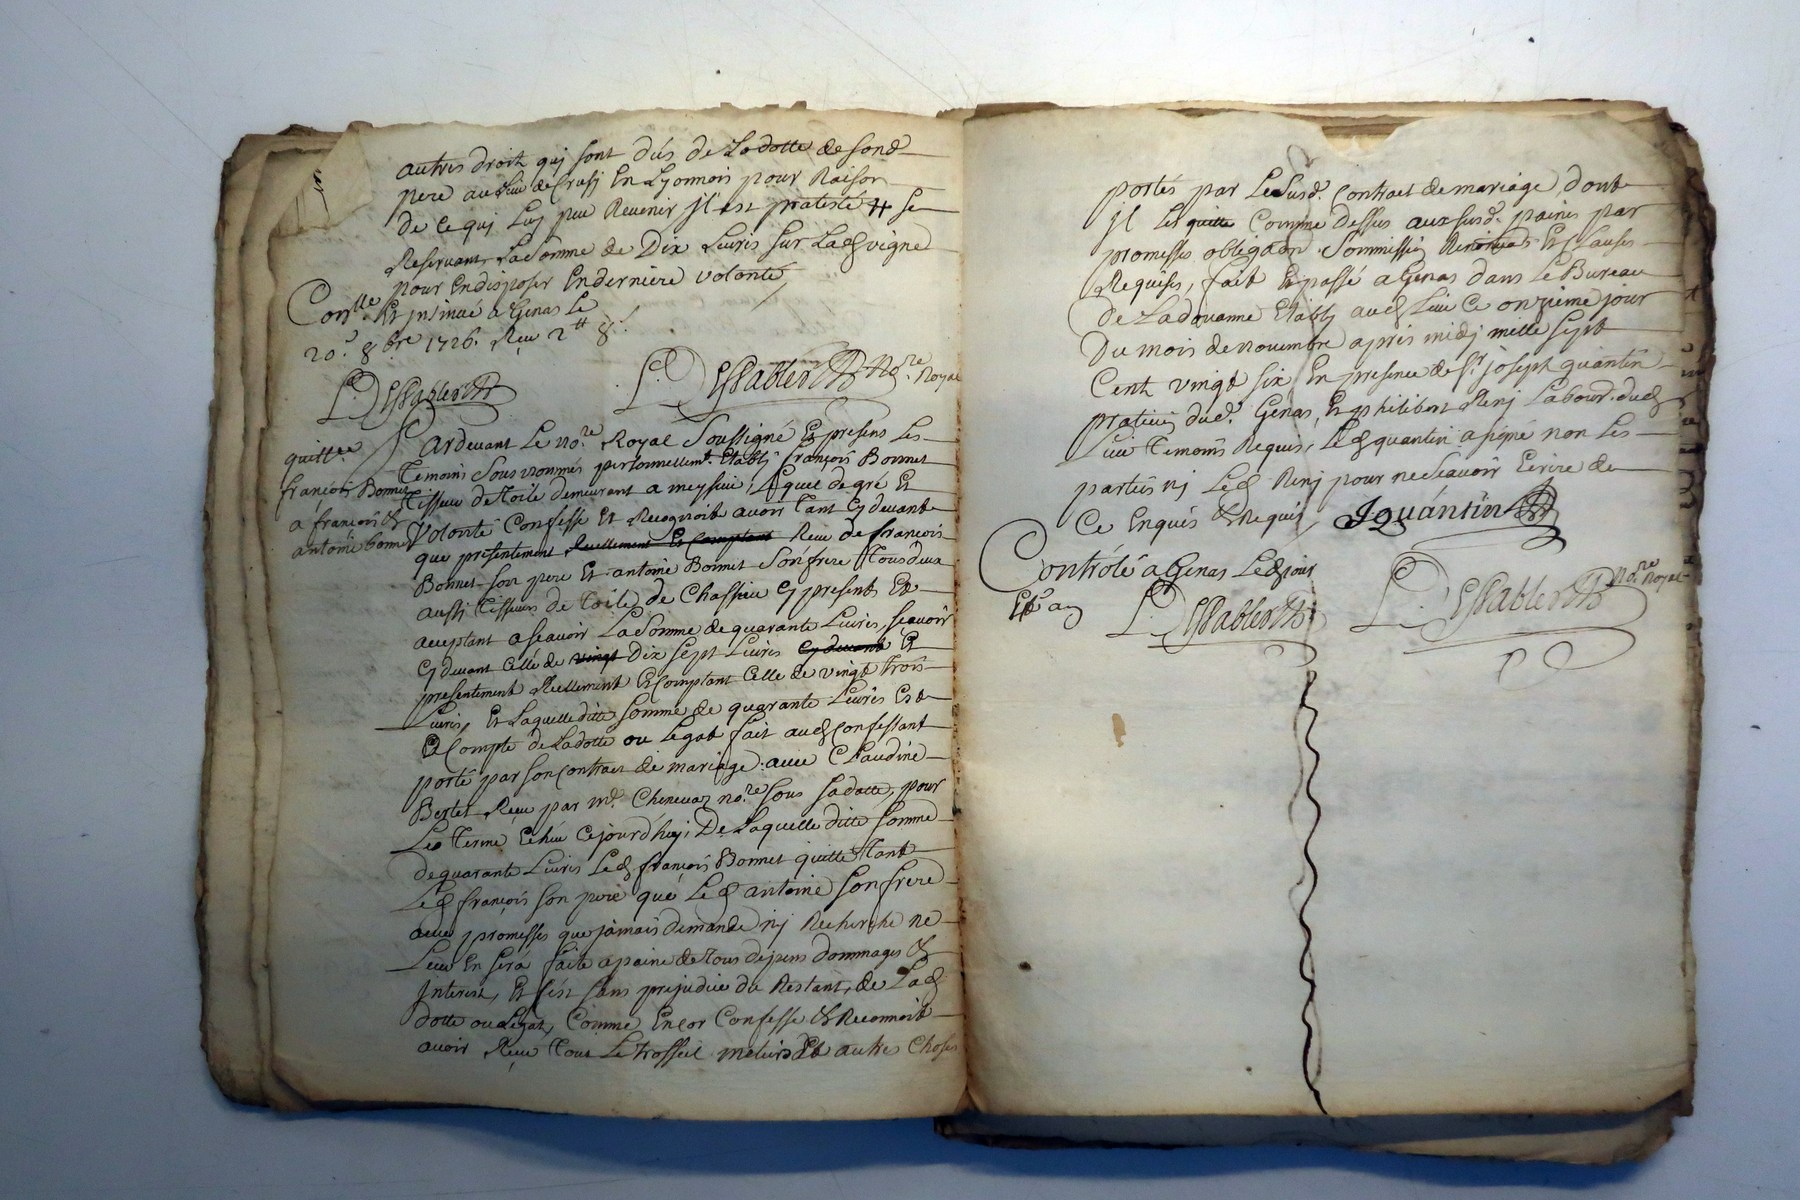 autres droit quj sont dus de La dotte de sond
pere au Lieu de Crusj En Lyonnois pour Raison
de ce quj Luj peu Revenir Jl est protesté # se
Reservant La Somme de Dix Livres sur Lad vigne
pour En disposer En derniere volonté
Conlle Et jnsinué a Genas Le
20.e 8bre 1726. Reçu 2tt 8s
L. DEssablettes
L. DEssablettes No.re Royal
quittce
françois Bonnet
a françois &
antoine bonnet
Pardevant Le no.re Royal Soussigné Et presens Les
Temoins Sousnommés personnellemt. Etablj françois Bonnet
Tisseur de Toile demeurant a meysieu, Lequel de gré Et
Volonté Confesse Et Recognoit avoir Tant Cy devant
que presentement Reellement Et Comptant Reçu de françois
Bonnet son pere Et antoine Bonnet Son frere Tous deux
aussj Tisseurs de Toiles de Chassieu Cy presents Et
aceptant a Scavoir La Somme de quarante Livres, scavoir
Cy devant Celle de vingt Dix Sept Livres Cy devant Et
presentement Reellement Et Comptant Celle de vingt trois
Livres, Et Laquelle ditte somme de quarante Livres Est
a Compte de La dotte ou Legat fait aud Confessant
porté par son Contract de mariage avec Claudine
Bertet Reçu par me. Chenevaz no.re Sous sa datte, pour
Les Terme Echeu Cejourdhuj, De Laquelle ditte somme
de quarante Livres Led françois Bonnet quitte Tant
Led françois son pere que Led antoine son frere
avec promesses que jamais demande nj Recherche ne
Leur En sera faite a paine de Tous depens dommages &
Interest, Et s'est sans prejudice du Restant, de Lad
dotte ou Legat, Comme Encor Confesse & Reconnoit
avoir Reçu Tout Le trosseil meubles Et autres Choses
portés par Le Susd. Contract de mariage dont
Jl Les quitte Comme Dessus aux susd. paines par
promesses obligaon Sommission Renonciaons Et Clauses
Requises, fait Et passé a Genas dans Le Bureau
de La doüanne Etablj aud Lieu Ce onzieme jour
Du mois de novembre apres midj mille Sept
Cent vingt Six En presence de Sr joseph quantin
praticien dud. Genas, Et philibert Renj Labour. dud
Lieu Temoins Requis, Led quantin a signé non Les
parties nj Led Renj pour ne Scavoir Ecrire de
Ce Enquis & Requis, JQuántin
Contrôlé a Genas Led jour
Et an
L. DEssablettes
L. DEssablettes No.re Royal